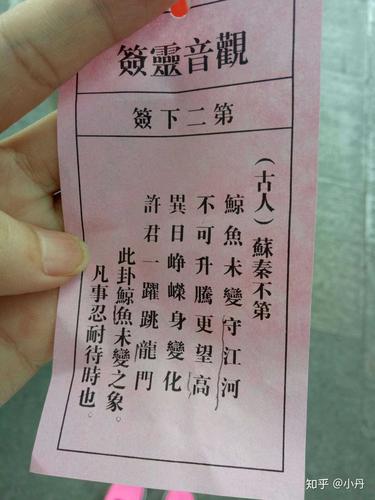 觀音靈簽
第二下簽
（古人）蘇秦不第
鯨魚未變守江河
不可升騰更望高
異日崢嶸身變化
許君一躍跳龍門
此卦鯨魚未變之象。
凡事忍耐待時也。
知乎 @小丹